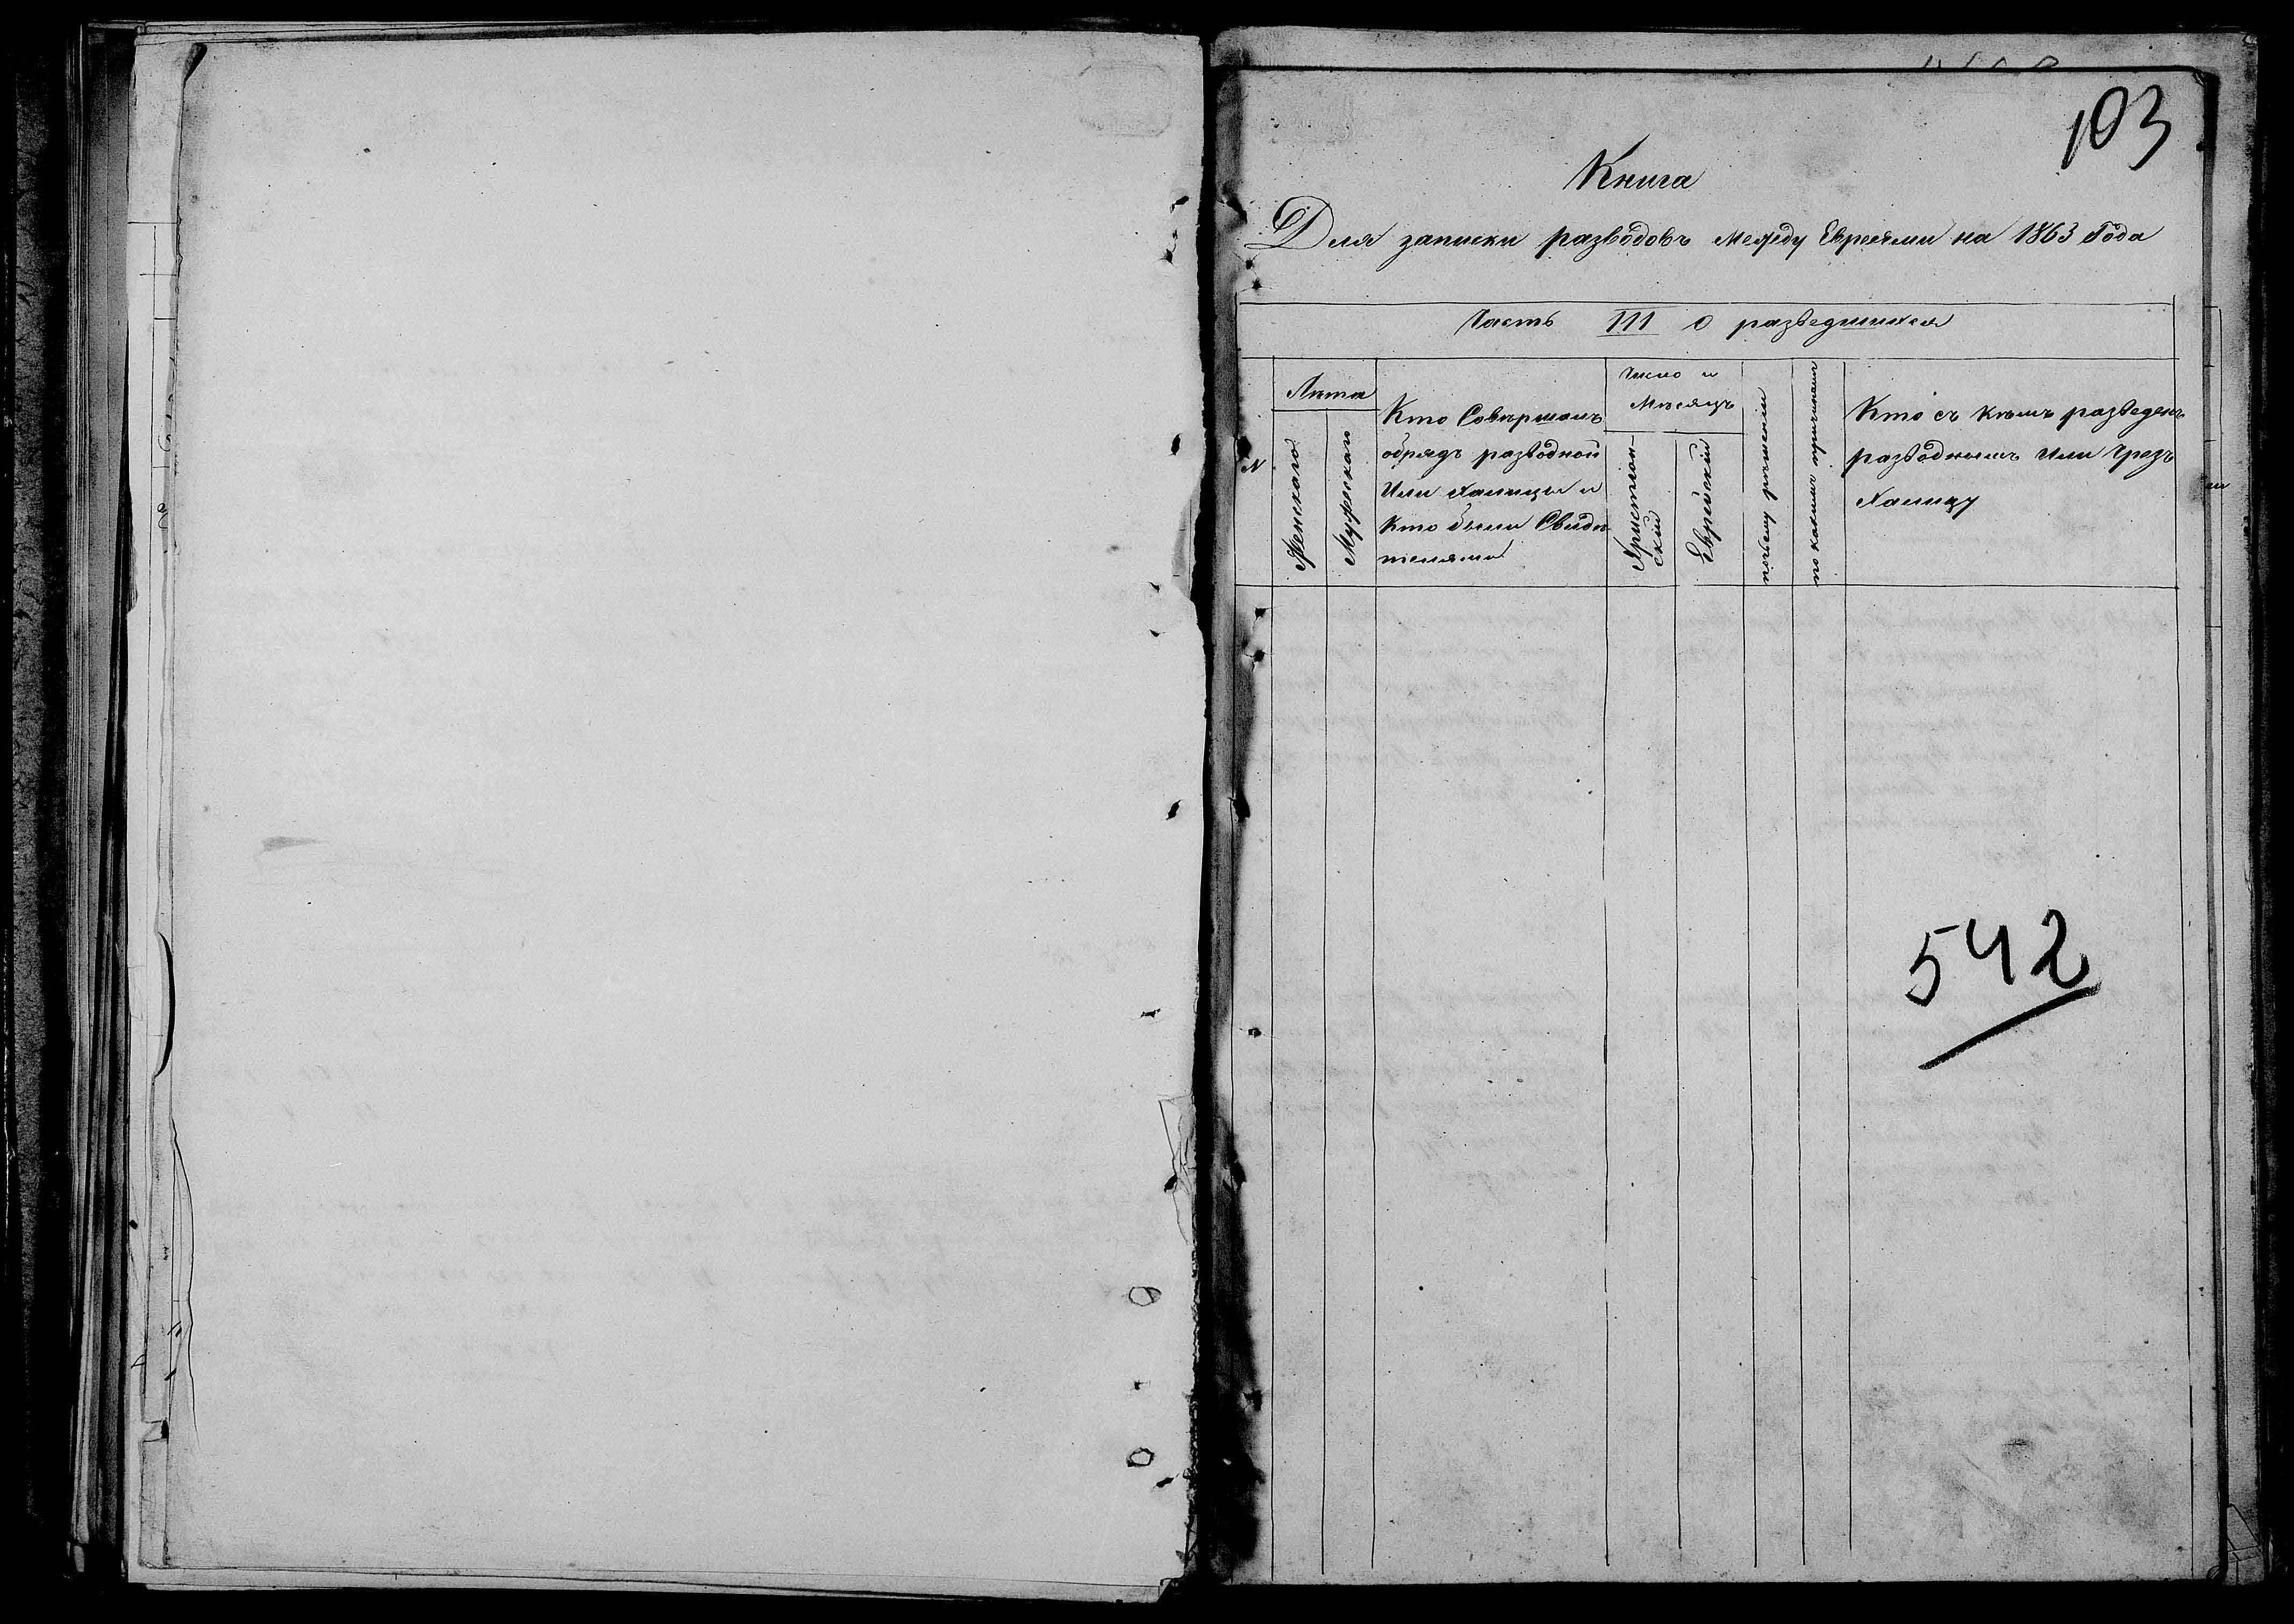 103
Книга
Для записки разводовъ между Евреями на 1863 Года
Часть III о разведшихся
N
Лѣта
Женскаго
Мужескаго
Кто Совѣршалъ
обрядъ разводной
Или халицы и
Кто были Свидѣ
телями
Число и
Мѣсяцъ
Христіан-
скій
Еврейскій
почьему рѣшенію
по какимъ причинамъ
Кто съ кѣмъ разведенъ
разводнымъ Или чрезъ
Халицу
542